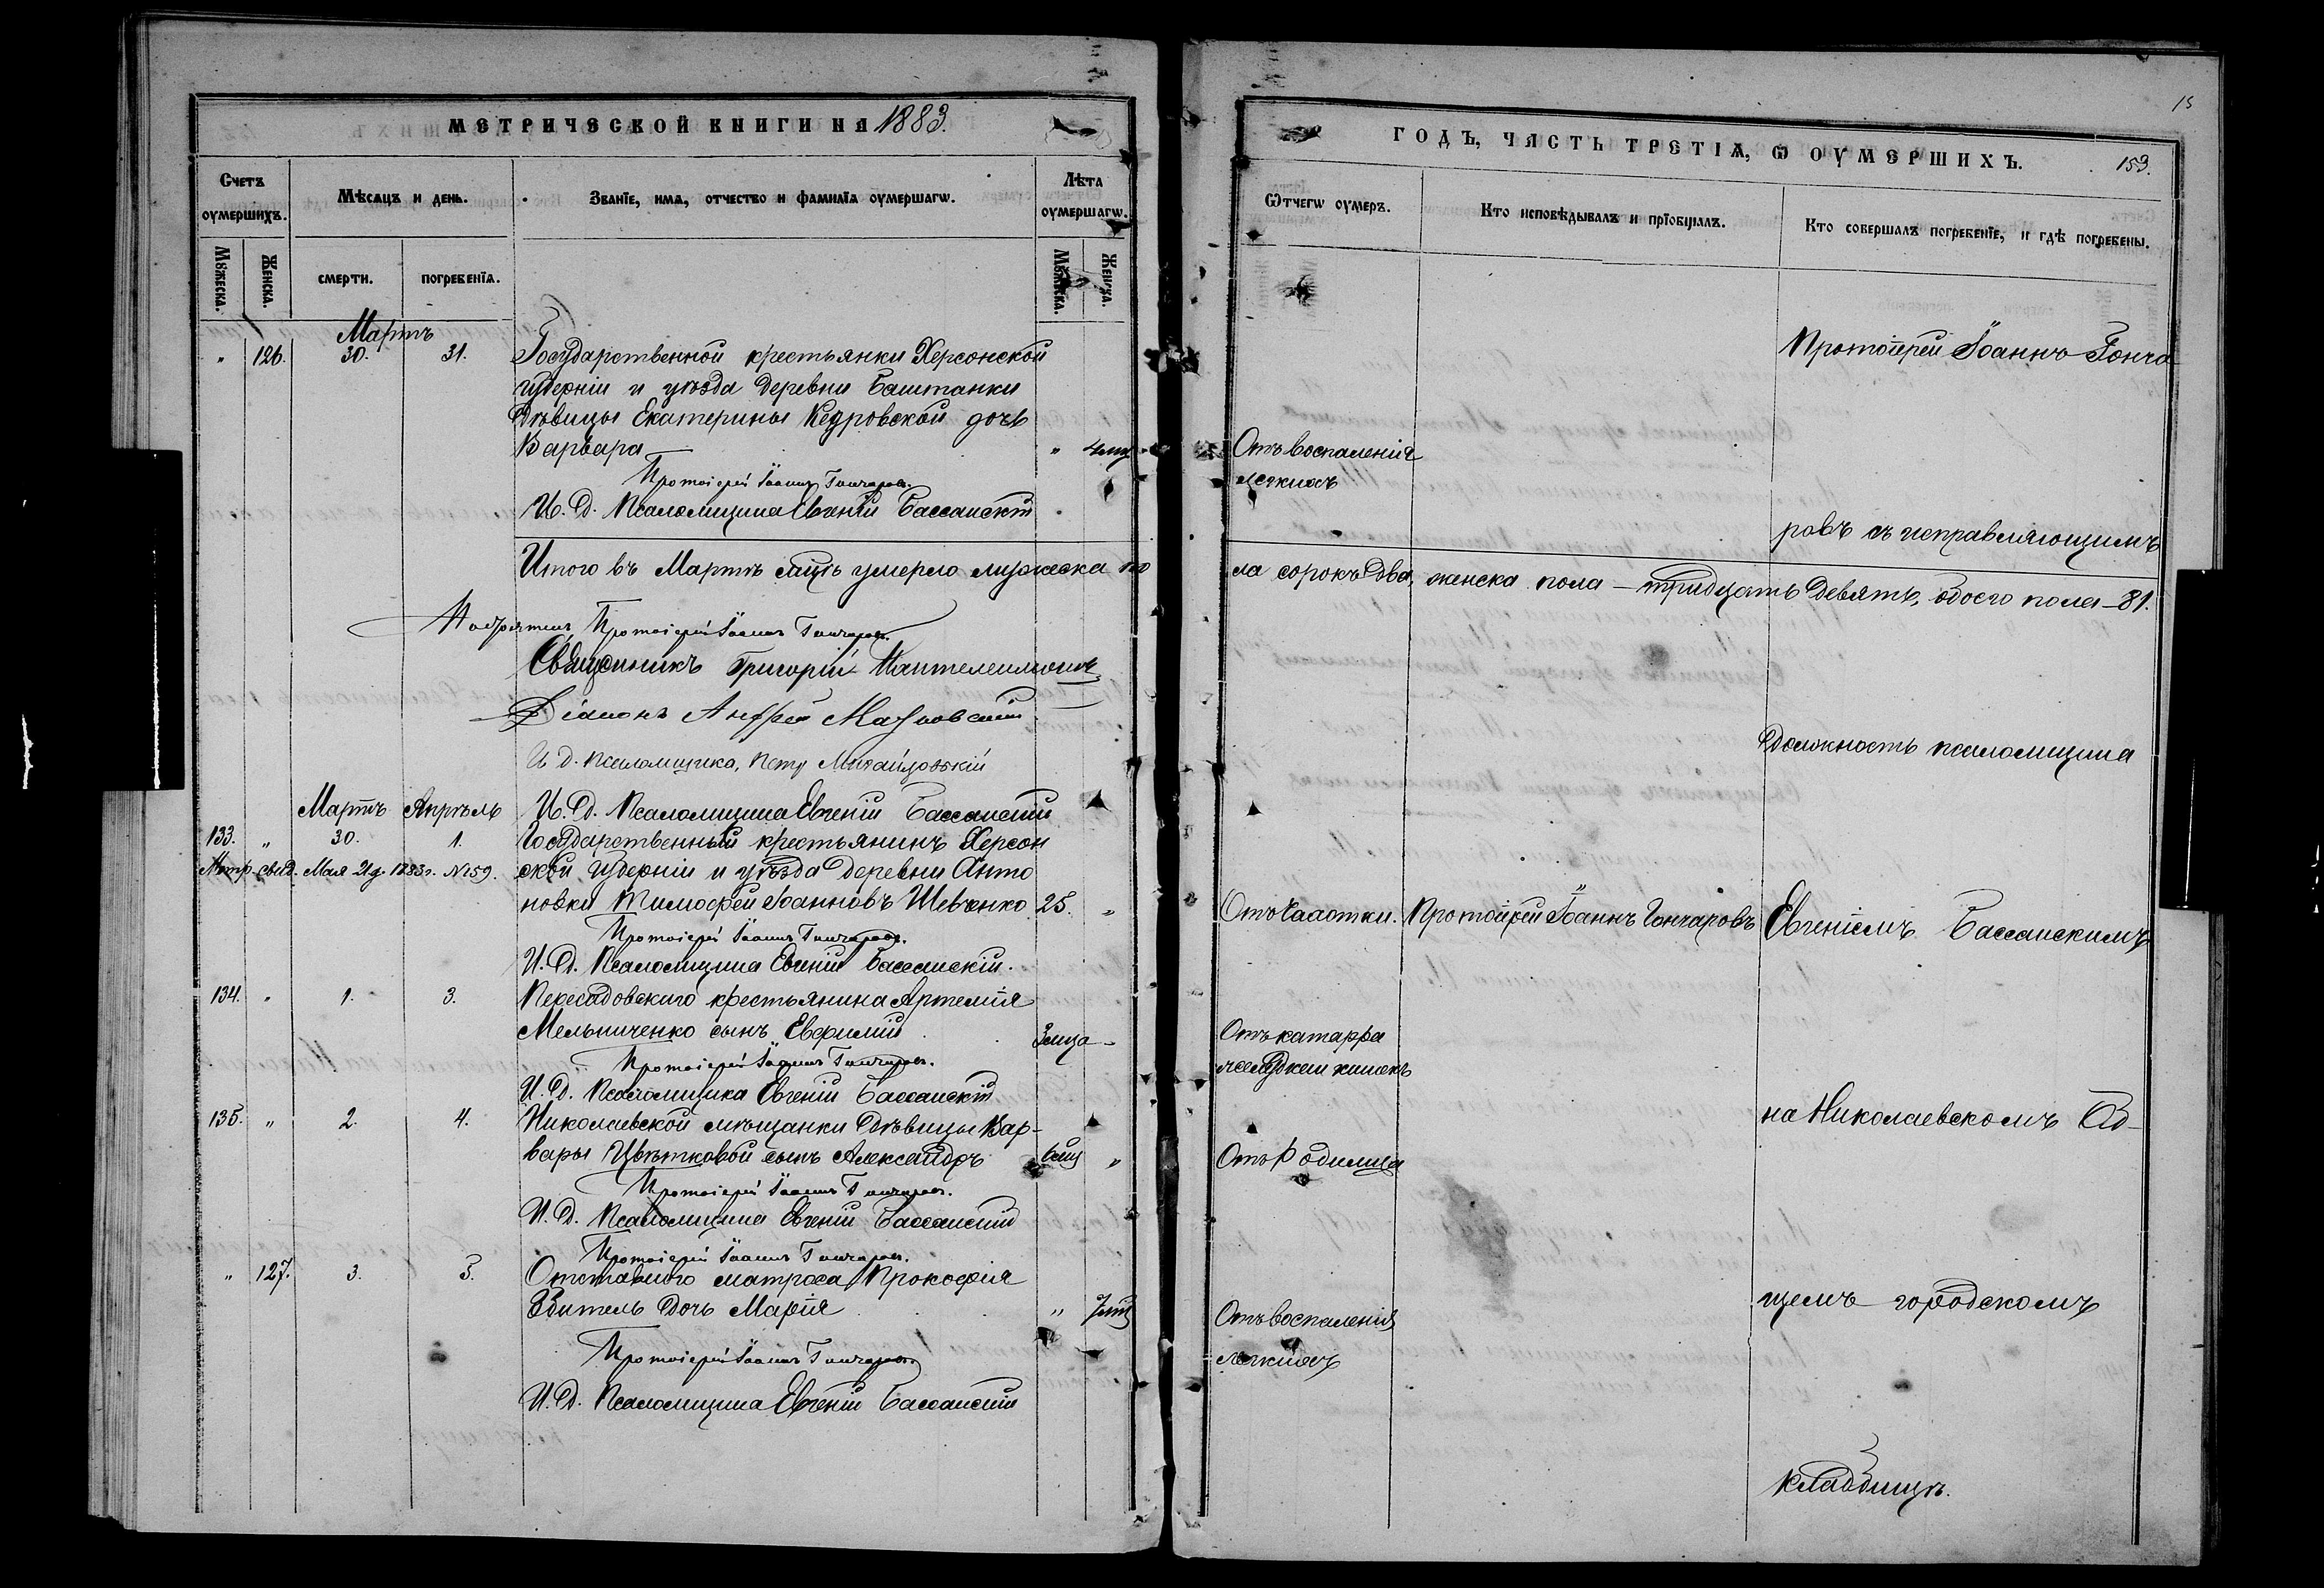 МЕТРИЧЕСКОЙ КНИГИ НА 1883.
Счетъ оумершихъ.
Мѣсяцъ и день.
Званїе, имя, отчество и фамилїя оумершагѡ.
Лѣта оумершагѡ.
Мꙋжеска.
Женска.
смерти.
погребенїя.
Мꙋжеска.
Женска.
Мартъ
" 126. 30. 31. Государственной крестьянки Херсонской
губерніи и уѣзда деревни Баштанки
Дѣвицы Екатерины Кедровской дочь
Варвара "
Протоіерей Іоаннъ Гончаровъ.
И. Д. Псаломщика Евгеній Бассанскій
Итого въ Мартѣ мцѣ умерло мужеска по
Протоіерей Іоаннъ Гончаровъ.
Священникъ Григорій Пантелеимоновъ
Діаконъ Андрей
И. Д. псаломщика, Петръ Михайловскій
Мартъ Апрѣль И. Д. Псаломщика Евгеній Бассанскій
133. " 30. 1. Государственный крестьянинъ Херсон
Метр. свид. Мая 21 д. 1883 г. №59. ской губерніи и уѣзда деревни Анто
новки Тимофей Іоанновъ Шевченко 25. "
Протоіерей Іоаннъ Гончаровъ.
И. Д. Псаломщика Евгеній Бассанскій.
134. " 1. 3. Пересадовского крестьянина Артемія
Мельниченко сынъ Евфимій 3 мца -
Протоіерей Іоаннъ Гончаровъ.
И. Д. Псаломщика Евгеній Бассанскій
135. " 2. 4. Николаевской мѣщанки дѣвицы Вар-
вары Цвѣтковой сынъ Александръ 6 мц "
Протоіерей Іоаннъ Гончаровъ.
И. Д. Псаломщика Евгеній Бассанскій
Протоіерей Іоаннъ Гончаровъ.
" 127. 3. 5. Отставного матроса Прокофія
дочь Марія "
Протоіерей Іоаннъ Гончаровъ
И. Д. Псаломщика Евгеній Бассанскій
15
ГОДЪ, ЧАСТЬ ТРЕТІЯ, Ѡ ОУМЕРШИХЪ.
153.
Ѿтчегѡ оумеръ.
Кто исповѣдывалъ и прїобщалъ.
Кто совершалъ погребенїе, и гдѣ погребены.
Протоіерей Іоаннъ Гонча
Отъ воспаленія
легкихъ
ровъ съ исправляющимъ
ла сорокъ два, женска пола – тридцать девять, обоего пола – 81.
должность псаломщика
Отъ чахотки. Протоіерей Іоаннъ Гончаровъ Евгеніемъ Бассанскимъ
Отъ катарра
желудка и кишекъ
на Николаевскомъ Об-
Отъ родимца
щемъ городскомъ
Отъ воспаленія
легкихъ
кладбищѣ.